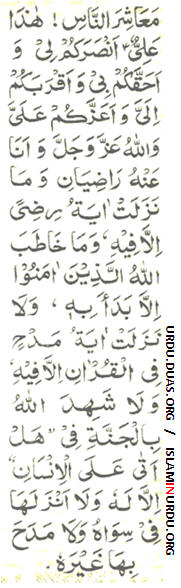 مَعَاشِرَ النَّاسِ! هٰذَا
عَلِىٌّ اَنْصَرُكُمْ لِىْ وَ
اَحَقُّكُمْ بِىْ وَاَقْرَبُكُمْ
اِلَىَّ وَاَعَزُّكُمْ عَلَىَّ
وَاللهُ عَزَّوَجَلَّ وَاَنَا
عَنْهُ رَاضِيَانِ وَمَا
نَزَلَتْ اٰيَةُ رِضًى
اِلَّا فِيْهِ، وَمَا خَاطَبَ
اللهُ الَّذِيْنَ اٰمَنُوْا
اِلَّا بَدَأَ بِهٖ، وَلَا
نَزَلَتْ اٰيَةُ مَدْحٍ
فِى الْقُرْاٰنِ اِلَّا فِيْهِ،
وَلَا شَهِدَ اللهُ
بِالْجَنَّةِ فِىْ "هَلْ
اَتٰى عَلَى الْاِنْسَانِ"
اِلَّا لَهٗ وَلَا اَنْزَلَهَا
فِىْ سِوَاهُ وَلَا مَدَحَ
بِهَا غَيْرَهٗ.
URDU.DUAS.ORG / ISLAMINURDU.ORG